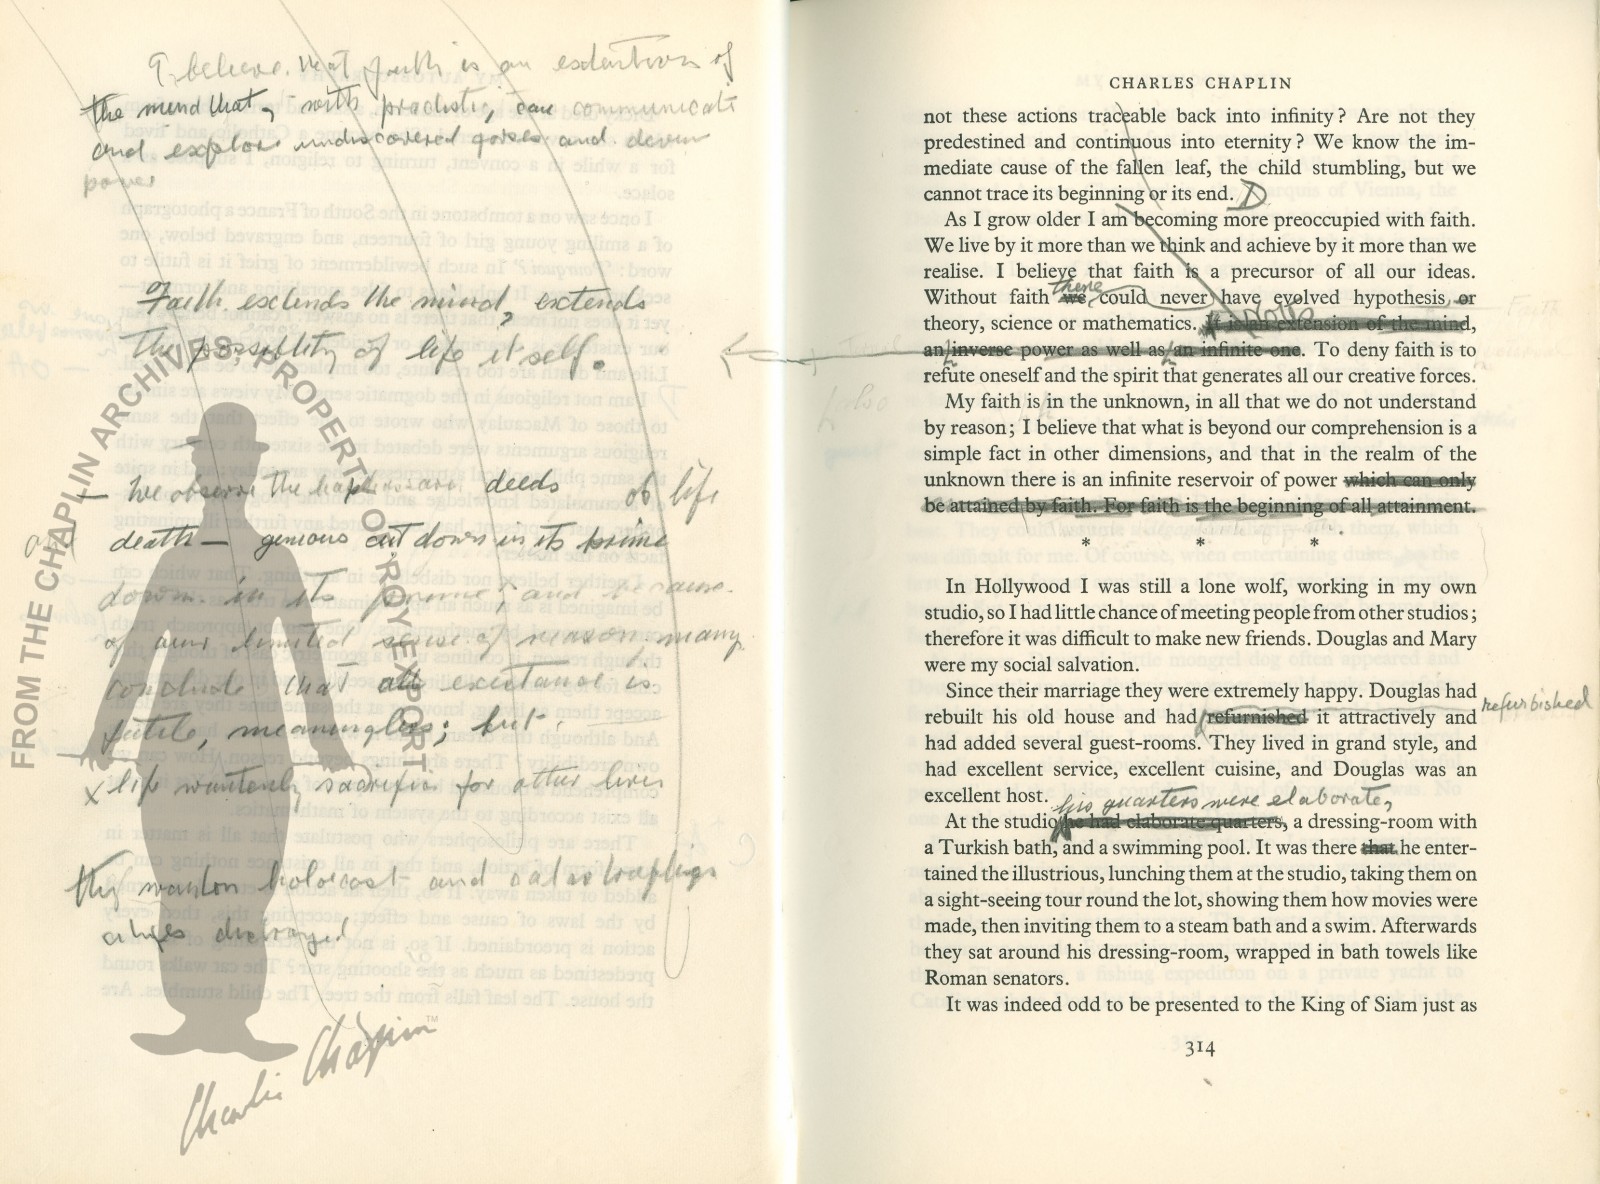 I believe that faith is an extention of
the mind that, with practice, can communicate
and explore undiscovered and
power
Faith extends the mind, extends
the possibility of life itself.
— We observe the deeds of life
death — genious cut down in its prime
down in its prime; and because
of our limited sense of reason many
conclude that all existance is
futile, meaningless; but
x life wantonly sacrifice for other lives
the wanton holocost and
cities destroyed
FROM THE CHAPLIN ARCHIVES. PROPERTY OF ROY EXPORT
Charlie Chaplin™
CHARLES CHAPLIN
not these actions traceable back into infinity? Are not they
predestined and continuous into eternity? We know the im-
mediate cause of the fallen leaf, the child stumbling, but we
cannot trace its beginning or its end. D
As I grow older I am becoming more preoccupied with faith.
We live by it more than we think and achieve by it more than we
realise. I believe that faith is a precursor of all our ideas.
there
Without faith we could never have evolved hypothesis, or
theory, science or mathematics. It is an extension of the mind,
an inverse power as well as an infinite one. To deny faith is to
refute oneself and the spirit that generates all our creative forces.
My faith is in the unknown, in all that we do not understand
by reason; I believe that what is beyond our comprehension is a
simple fact in other dimensions, and that in the realm of the
unknown there is an infinite reservoir of power which can only
be attained by faith. For faith is the beginning of all attainment.
* * *
In Hollywood I was still a lone wolf, working in my own
studio, so I had little chance of meeting people from other studios;
therefore it was difficult to make new friends. Douglas and Mary
were my social salvation.
Since their marriage they were extremely happy. Douglas had
refurbished
rebuilt his old house and had refurnished it attractively and
had added several guest-rooms. They lived in grand style, and
had excellent service, excellent cuisine, and Douglas was an
excellent host.
his quarters were elaborate,
At the studio he had elaborate quarters, a dressing-room with
a Turkish bath, and a swimming pool. It was there that he enter-
tained the illustrious, lunching them at the studio, taking them on
a sight-seeing tour round the lot, showing them how movies were
made, then inviting them to a steam bath and a swim. Afterwards
they sat around his dressing-room, wrapped in bath towels like
Roman senators.
It was indeed odd to be presented to the King of Siam just as
314